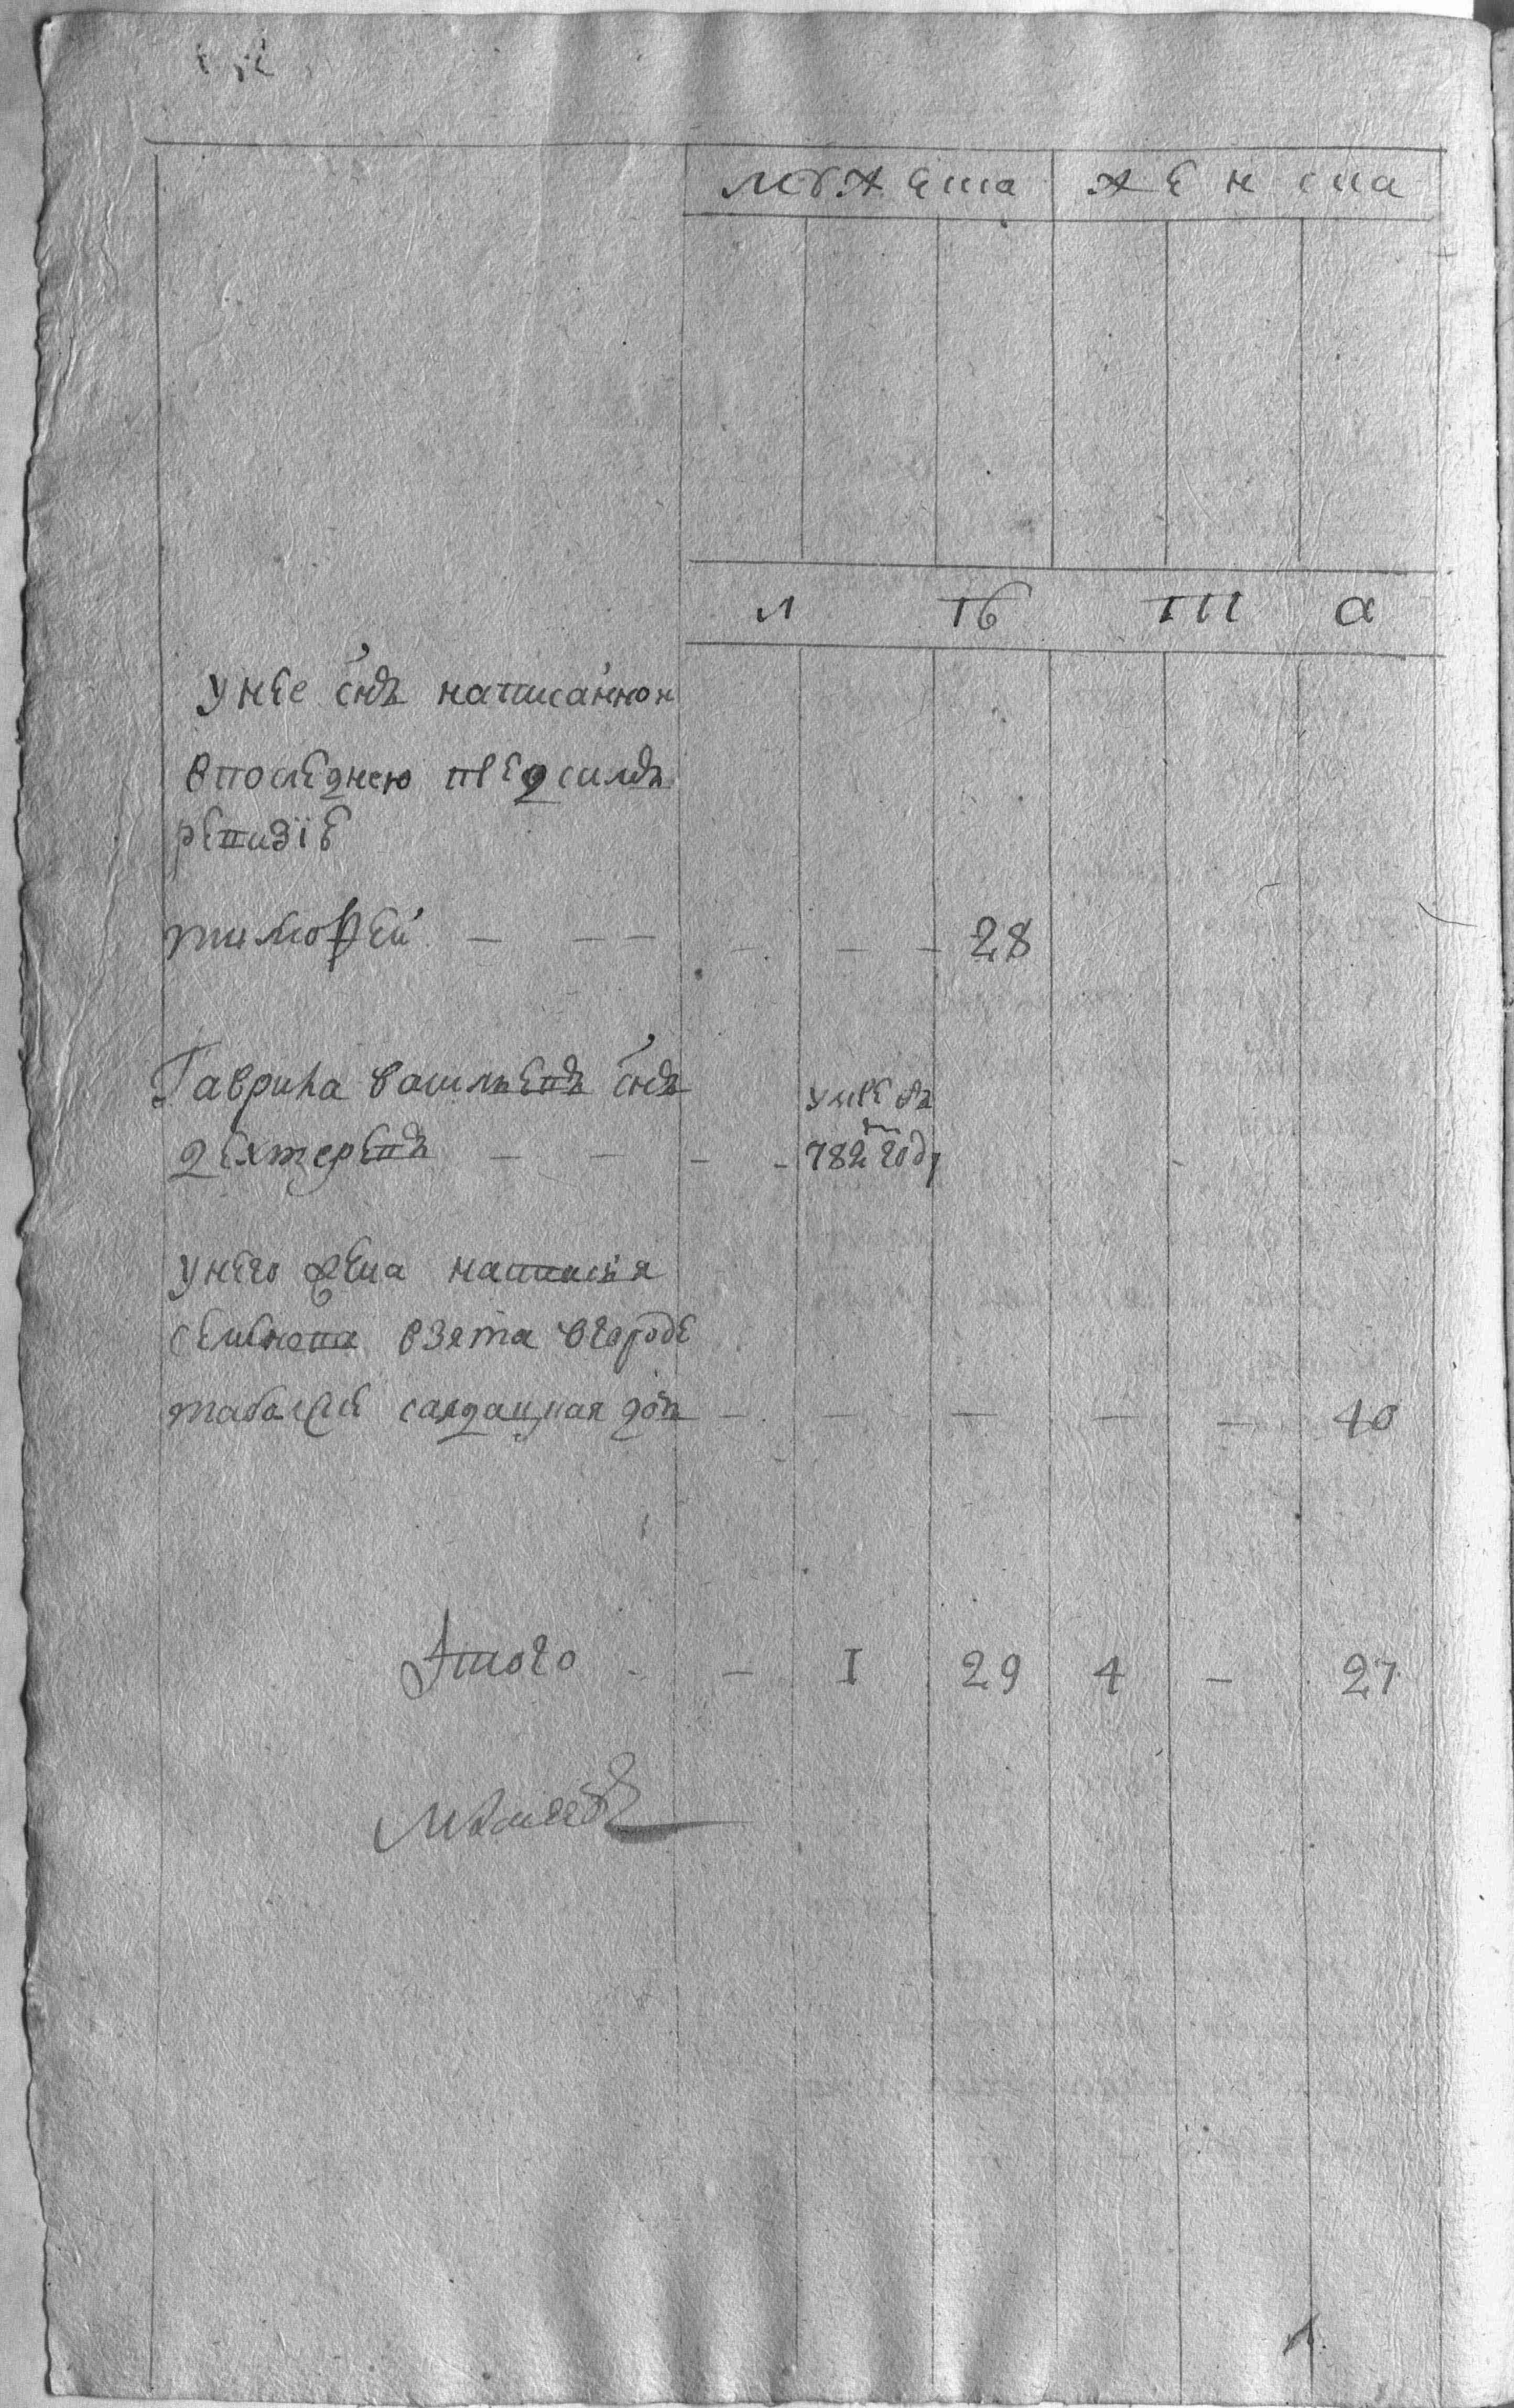 мужеска женска
лѣта
У нее снъ написанной
в последнею пред симъ
ревизiе
тимофей — — — — — — 28
Гаврила васильевъ снъ умре въ
дехтеревъ — — — — 782 м году
У него жена наталья
семенова взята в городе
таболске салдацкая дочь — — — — — 40
Итого - — I 29 4 — 27